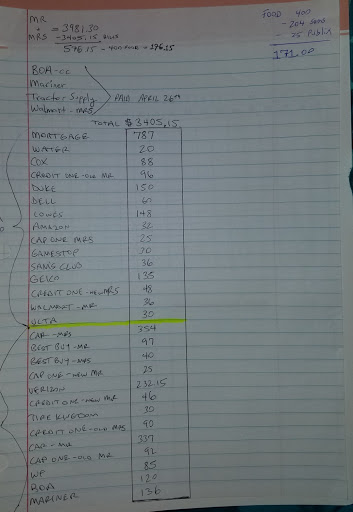 MR
+ = 3981.30
MRS - 3405.15 Bills
576.15 - 400 FOOD = 176.15
FOOD 400
- 204 Sams
- 25 Publix
171.00
BOA-CC
Mariner
Tractor Supply
Walmart - MRS
PAID APRIL 26th
TOTAL $3405.15
MORTGAGE 787
WATER 20
COX 88
CREDIT ONE-OLD MR 96
DUKE 150
DELL 60
LOWES 148
AMAZON 32
CAP ONE MRS 25
GAMESTOP 70
SAMS CLUB 36
GEICO 135
CREDIT ONE-NEW MRS 48
WALMART-MR 36
ULTA 30
CAR-MRS 354
BEST BUY-MR 97
BEST BUY-MRS 40
CAP ONE-NEW MR 25
VERIZON 232.15
CREDIT ONE-NEW MR 46
TIRE KINGDOM 30
CREDIT ONE-OLD MRS 90
CAR-MR 337
CAP ONE-OLD MR 92
WF 85
BOA 120
MARINER 136